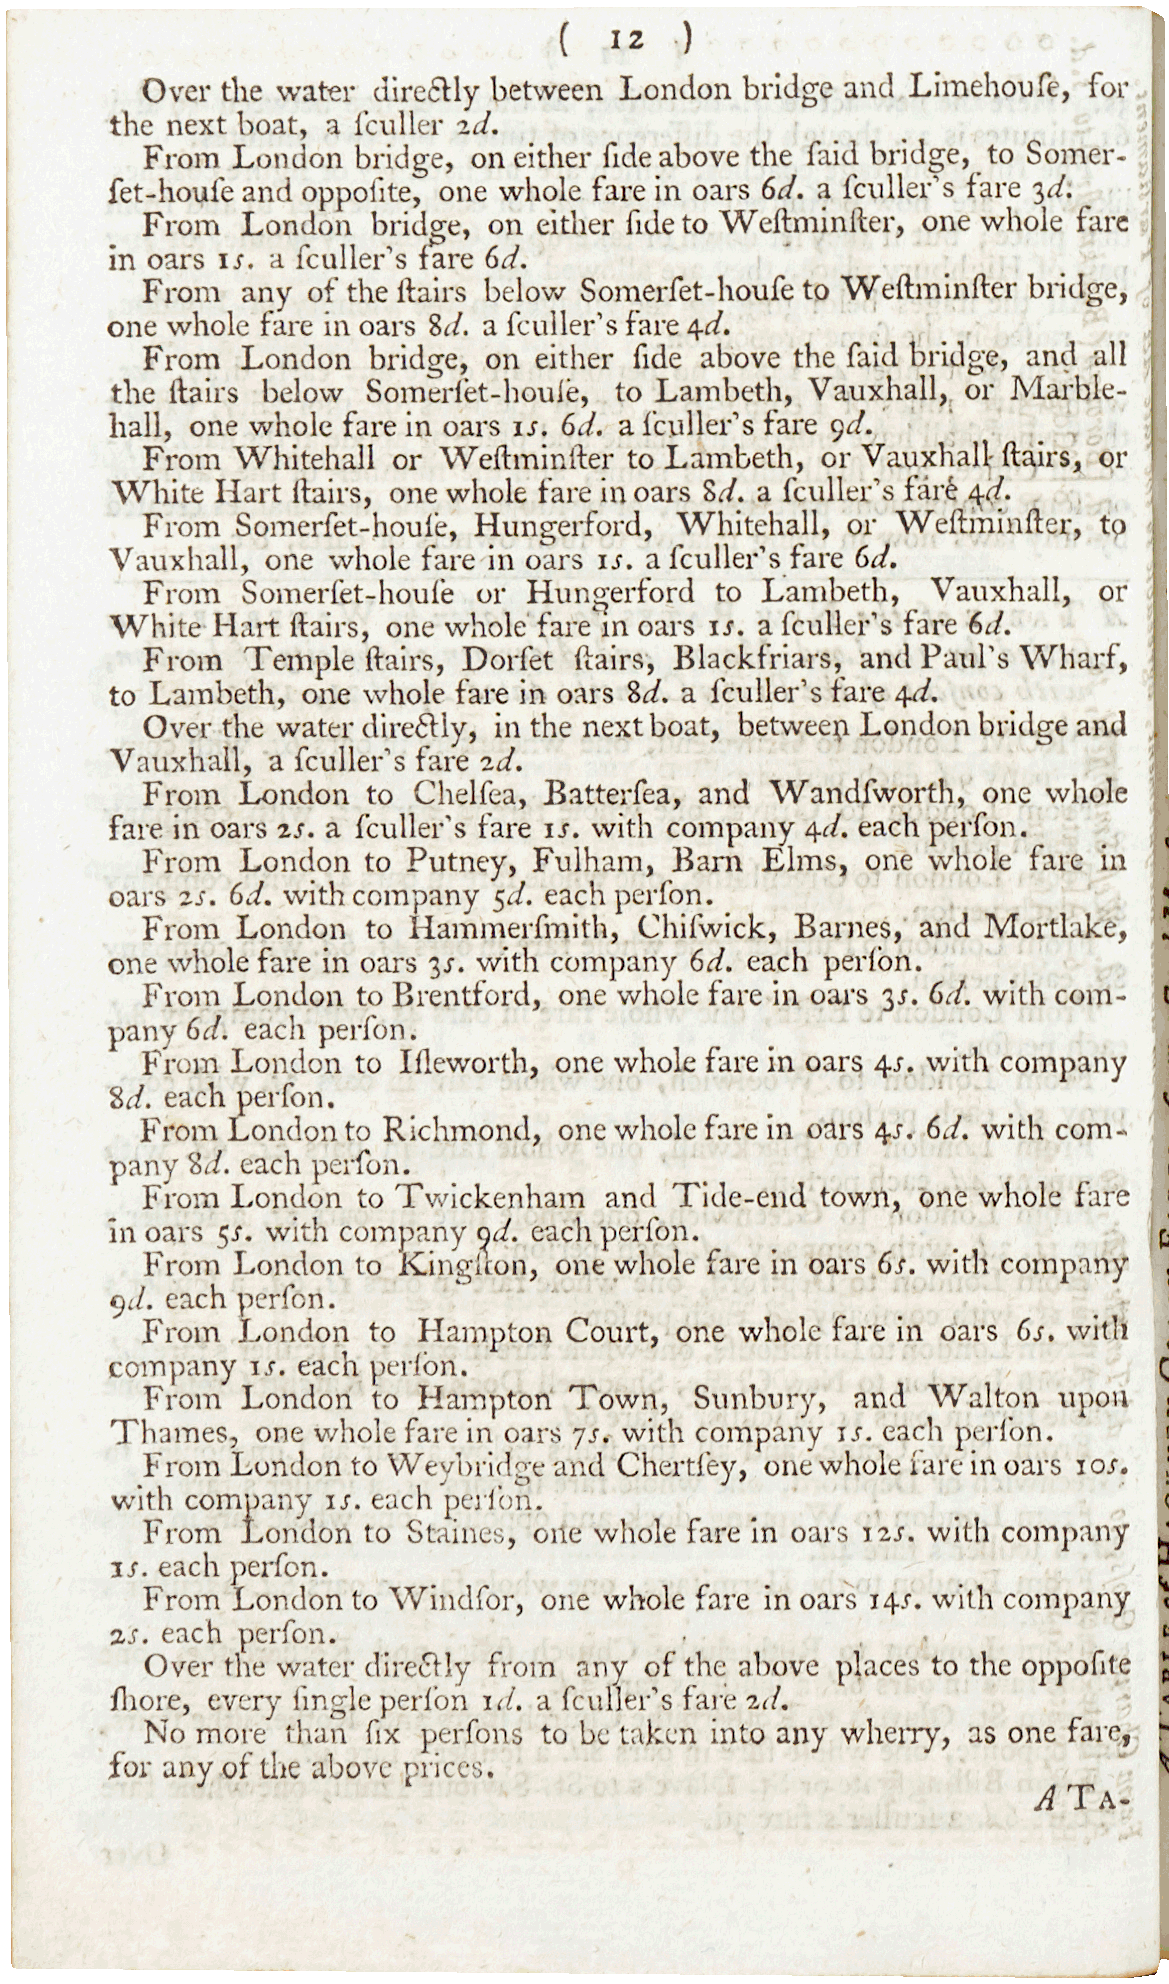 ( 12 )
Over the water directly between London bridge and Limehouſe, for
the next boat, a ſculler 2d.
From London bridge, on either ſide above the ſaid bridge, to Somer-
ſet-houſe and oppoſite, one whole fare in oars 6d. a ſculler's fare 3d.
From London bridge, on either ſide to Weſtminſter, one whole fare
in oars 1s. a ſculler's fare 6d.
From any of the ſtairs below Somerſet-houſe to Weſtminſter bridge,
one whole fare in oars 8d. a ſculler's fare 4d.
From London bridge, on either ſide above the ſaid bridge, and all
the ſtairs below Somerſet-houſe, to Lambeth, Vauxhall, or Marble-
hall, one whole fare in oars 1s. 6d. a ſculler's fare 9d.
From Whitehall or Weſtminſter to Lambeth, or Vauxhall ſtairs, or
White Hart ſtairs, one whole fare in oars 8d. a ſculler's fare 4d.
From Somerſet-houſe, Hungerford, Whitehall, or Weſtminſter, to
Vauxhall, one whole fare in oars 1s. a ſculler's fare 6d.
From Somerſet-houſe or Hungerford to Lambeth, Vauxhall, or
White Hart ſtairs, one whole fare in oars 1s. a ſculler's fare 6d.
From Temple ſtairs, Dorſet ſtairs, Blackfriars, and Paul's Wharf,
to Lambeth, one whole fare in oars 8d. a ſculler's fare 4d.
Over the water directly, in the next boat, between London bridge and
Vauxhall, a ſculler's fare 2d.
From London to Chelſea, Batterſea, and Wandſworth, one whole
fare in oars 2s. a ſculler's fare 1s. with company 4d. each perſon.
From London to Putney, Fulham, Barn Elms, one whole fare in
oars 2s. 6d. with company 5d. each perſon.
From London to Hammerſmith, Chiſwick, Barnes, and Mortlake,
one whole fare in oars 3s. with company 6d. each perſon.
From London to Brentford, one whole fare in oars 3s. 6d. with com-
pany 6d. each perſon.
From London to Iſleworth, one whole fare in oars 4s. with company
8d. each perſon.
From London to Richmond, one whole fare in oars 4s. 6d. with com-
pany 8d. each perſon.
From London to Twickenham and Tide-end town, one whole fare
in oars 5s. with company 9d. each perſon.
From London to Kingſton, one whole fare in oars 6s. with company
9d. each perſon.
From London to Hampton Court, one whole fare in oars 6s. with
company 1s. each perſon.
From London to Hampton Town, Sunbury, and Walton upon
Thames, one whole fare in oars 7s. with company 1s. each perſon.
From London to Weybridge and Chertſey, one whole fare in oars 10s.
with company 1s. each perſon.
From London to Staines, one whole fare in oars 12s. with company
1s. each perſon.
From London to Windſor, one whole fare in oars 14s. with company
2s. each perſon.
Over the water directly from any of the above places to the oppoſite
ſhore, every ſingle perſon 1d. a ſculler's fare 2d.
No more than ſix perſons to be taken into any wherry, as one fare,
for any of the above prices.
A TA-